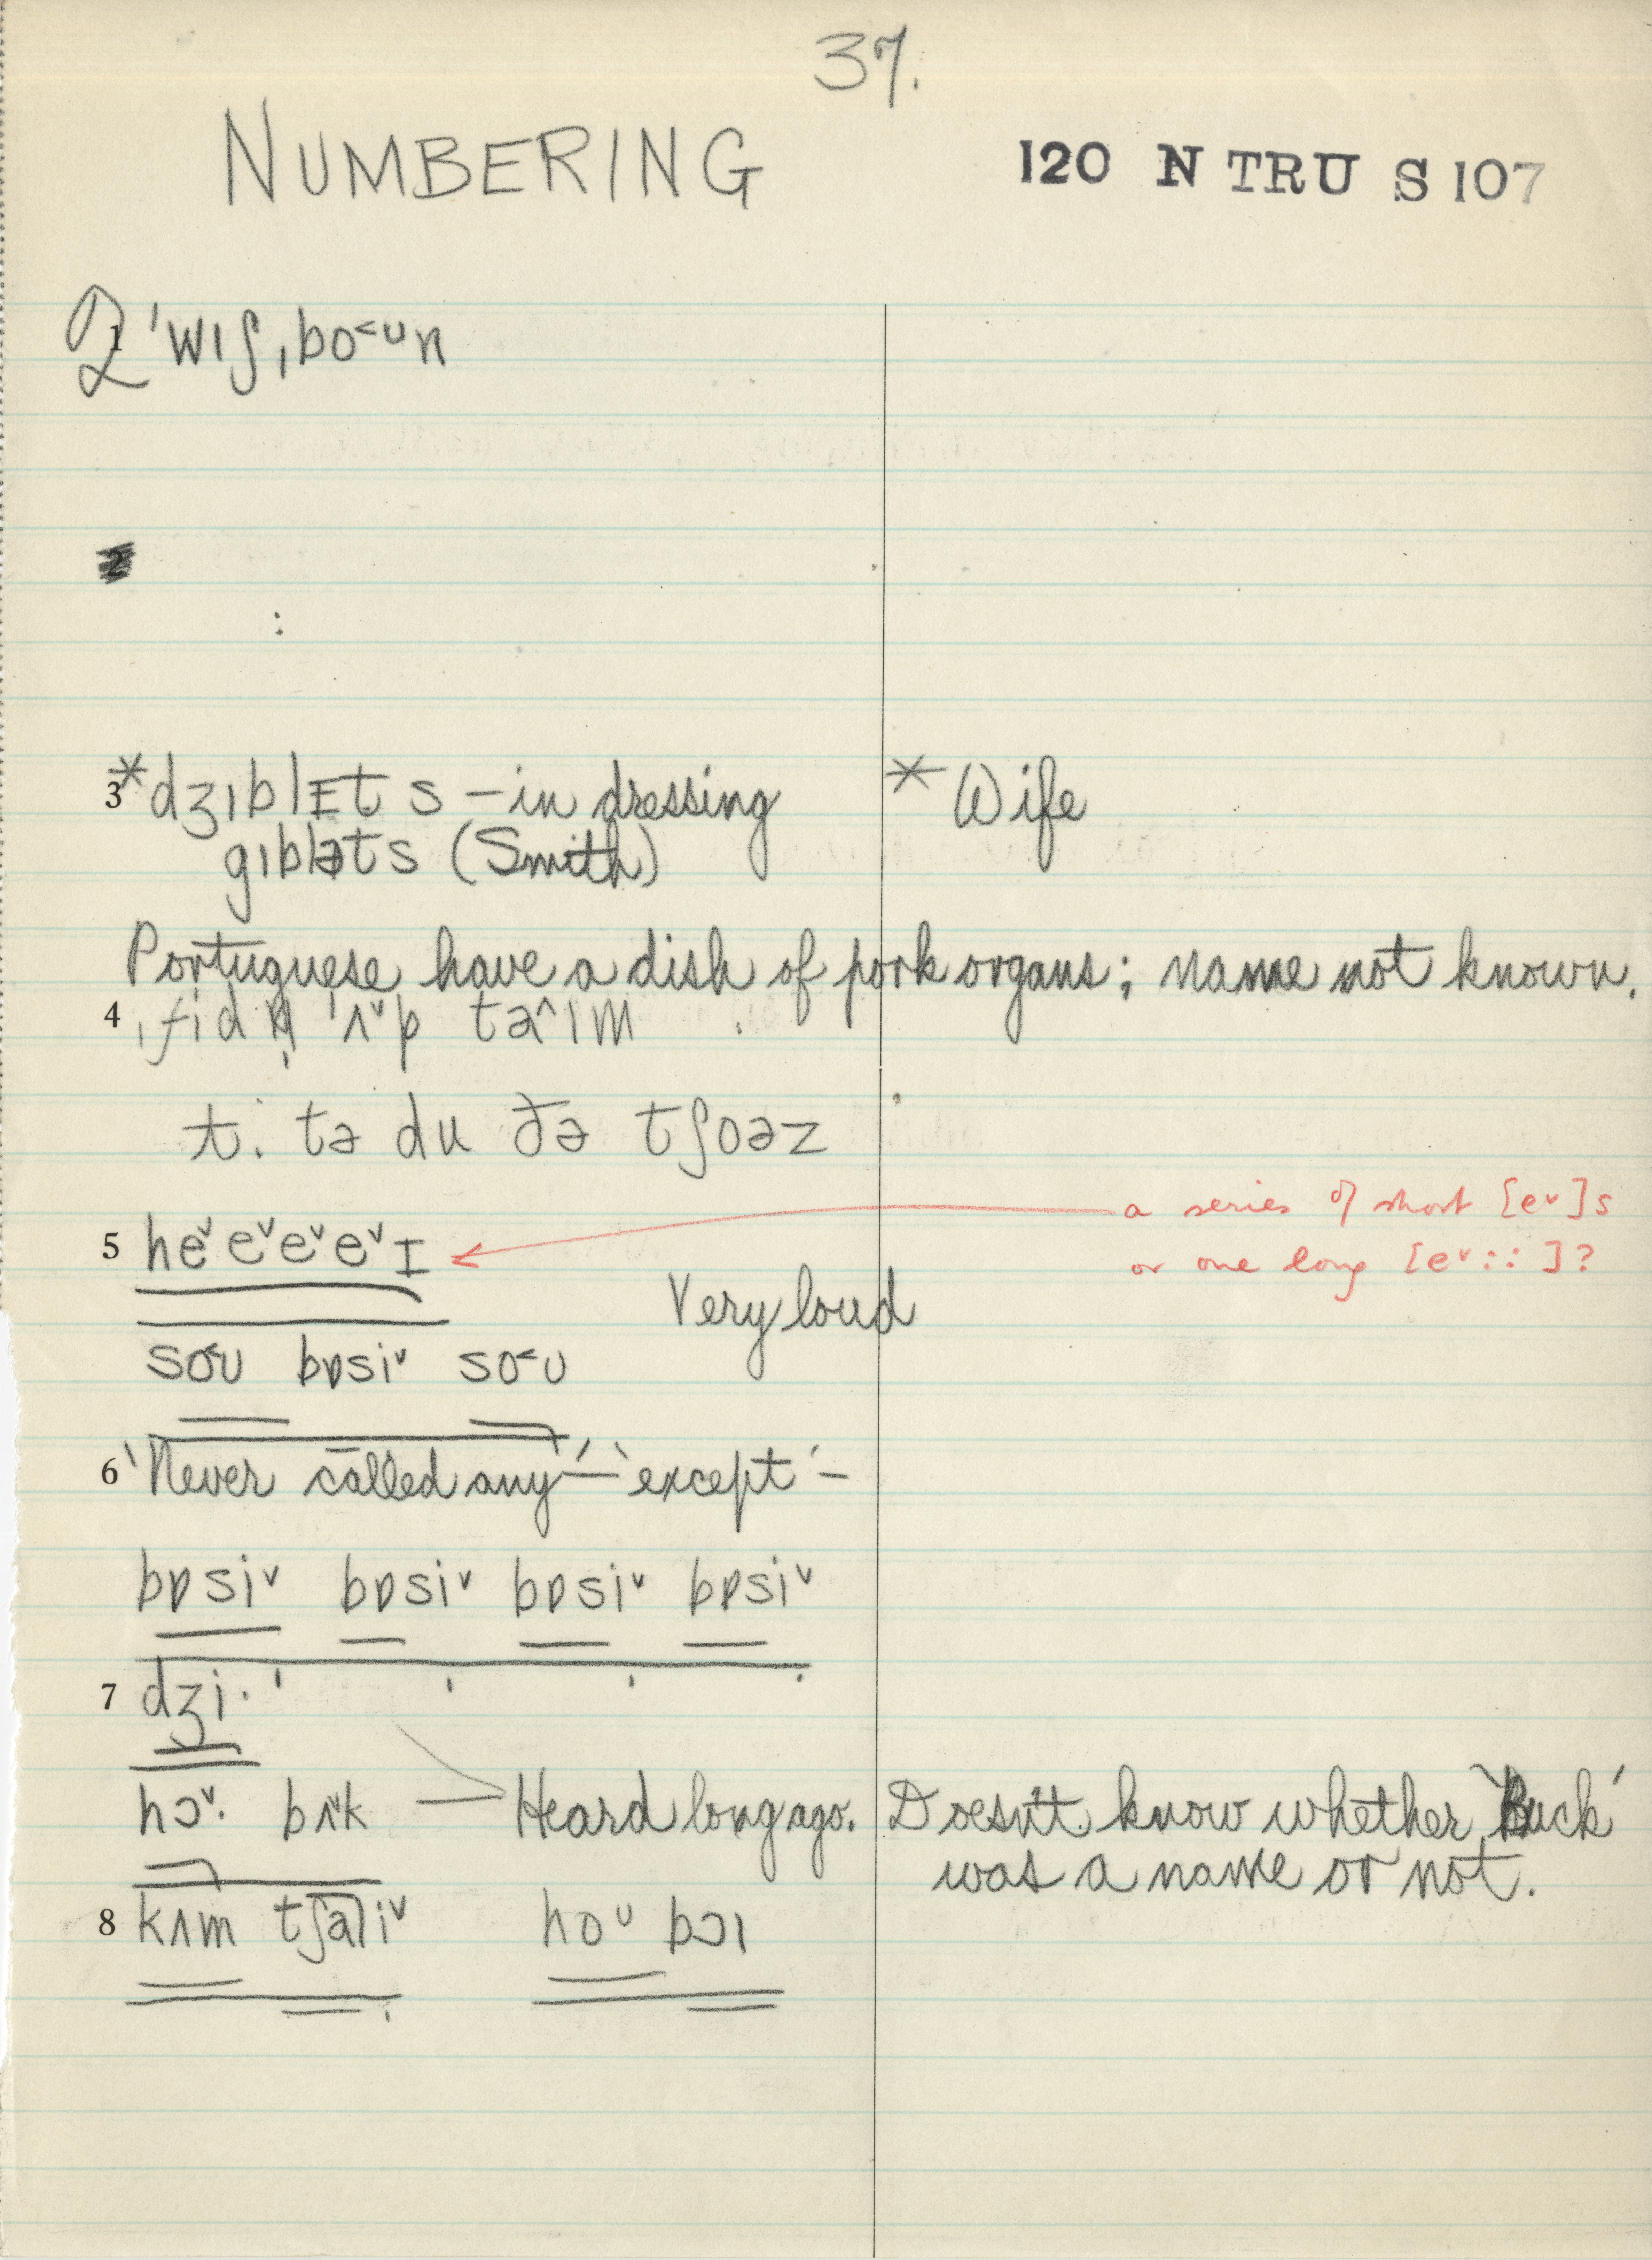 37.
NUMBERING
120 N TRU S 107
1 ˈwɪʃˌbo˂ᴜn
2
3 *dʒɪblᴇts – in dressing * Wife
gɪbləts (Smith)
Portuguese have a dish of pork organs; name not known.
4 ˌfidn̩ ˈʌ˅p ta^ɪm
t. tə du ðə tʃoəz
5 he˅e˅e˅e˅ɪ a series of short [e˅]s
or one long [e˅::]?
Very loud
so˂ᴜ bɒsi˅ so˂ᴜ
6 'Never called any' – 'except' –
bɒsi˅ bɒsi˅ bɒsi˅ bɒsi˅
7 dʒi·
hɔ˅· bʌ˅k — Heard long ago. Doesn't know whether 'Buck'
was a name or not.
8 kʌm tʃali˅ hoᴜ bɔɪ